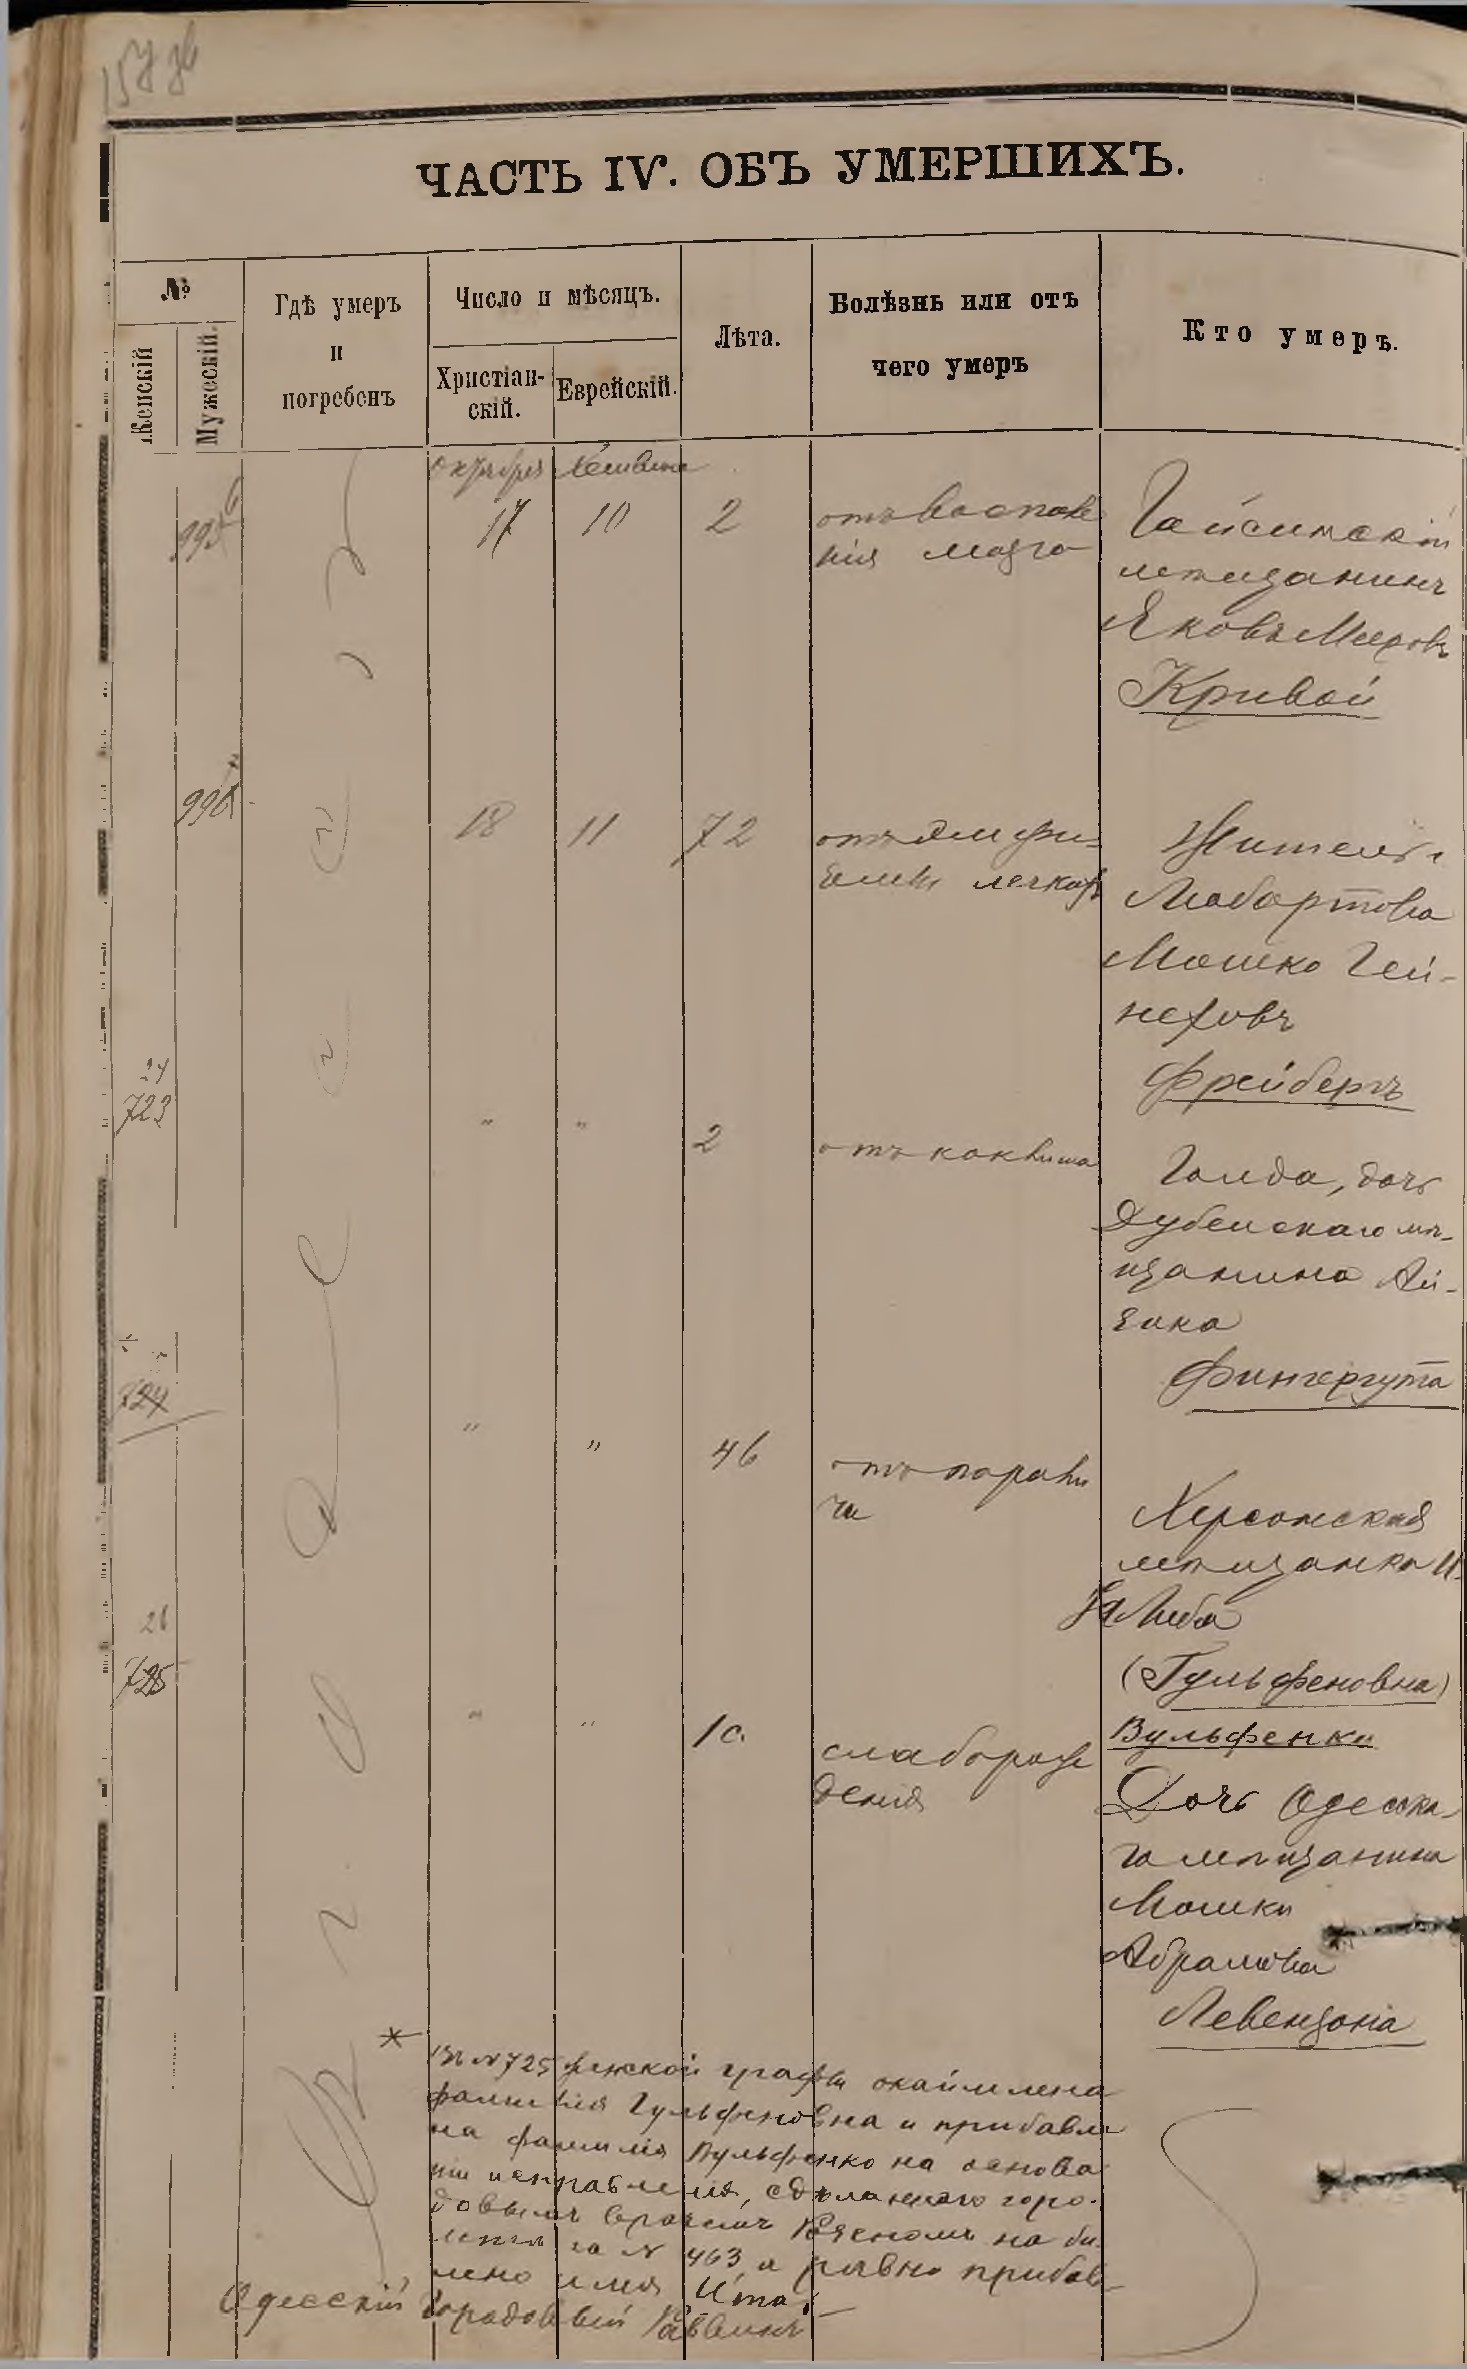 157 зв
ЧАСТЬ IV. ОБЪ УМЕРШИХЪ.
№
Женскій
Мужескій.
Гдѣ умеръ
и
погребенъ
Число и мѣсяцъ.
Христіан-
скій.
Еврейскій.
Лѣта.
Болѣзнь или отъ
чего умеръ
Кто умеръ.
Октября
17
10
2
отъ воспале
нія мозга
Гайсинскій
мѣщанинъ
Яковъ Мееровъ
Кривой
18
11
72
отъ эмфи-
земы легкихъ
Житель г
Любартова
Мошко Гей-
неховъ
Фрейбергъ
24
723
"
"
2
отъ коклюша
Голда, дочь
Дубенскаго мѣ-
щанина Ай-
зика
Фингергута
724
"
"
46
отъ парали
ча
Херсонская
мѣщанка И
та Либа
(Гульфеновна)
Вульфенко
26
725
"
"
1 с.
слаборож
денія
Дочь Одесска
го мѣщанина
Мошки
Абрамова
Левензона
* Въ № 725 женской графы окаймлена
фамилія Гульфеновна и прибавле
на фамилія Вульфенко на основа
ніи исправленія, сдѣланнаго горо-
довымъ врачемъ на би
летѣ за № 463, а равно прибав-
лено имя Ита.
Одесскій Городовой Раввинъ